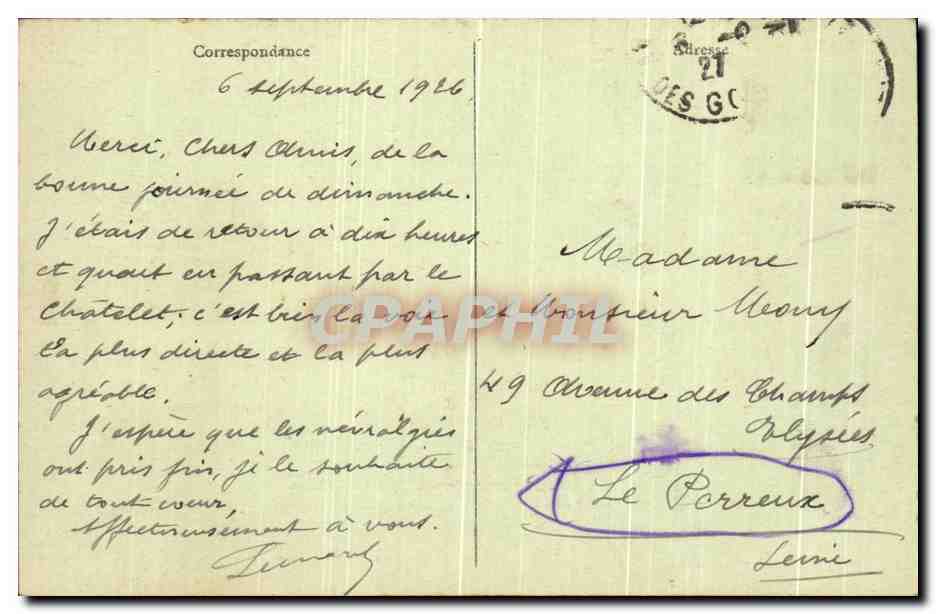 Correspondance
6 septembre 1926
Merci, chers Amis, de la
bonne journée de dimanche.
J'étais de retour à dix heures
et quart en passant par le
Châtelet; c'est bien la voie
la plus directe et la plus
agréable.
J'espère que les névralgies
ont pris fin, je le souhaite
de tout coeur,
Affectueusement à vous.
Adresse
21
DES GO
Madame
et Monsieur
49 Avenue des Champs
Elysées
Le Perreux
Seine
CPAPHIL